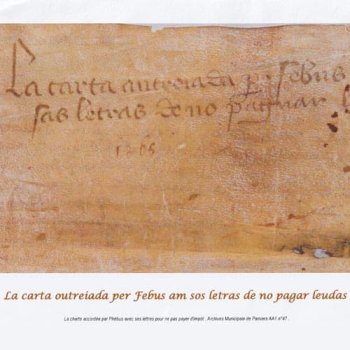 La carta autreiada per febus
sas letras de no paguar
La carta outreiada per Febus am sos letras de no pagar leudas
La charte accordée par Phébus avec ses lettres pour ne pas payer d'impôt . Archives Municipale de Pamiers AA1 n°47 .